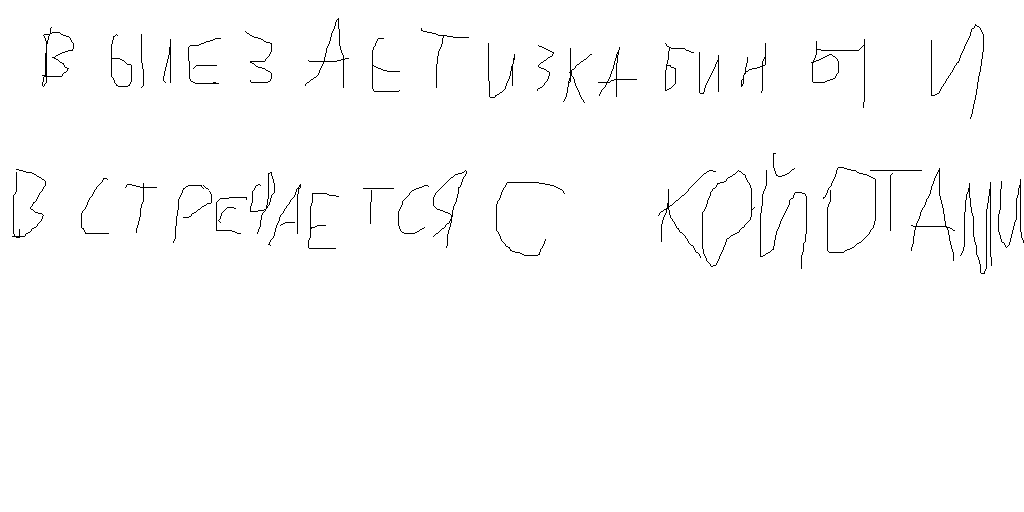 ВЫЛЕЗАЕТ ИЗ КАБИНЫ И
ВСТРЕЧАЕТСЯ С КОЙОТАМИ